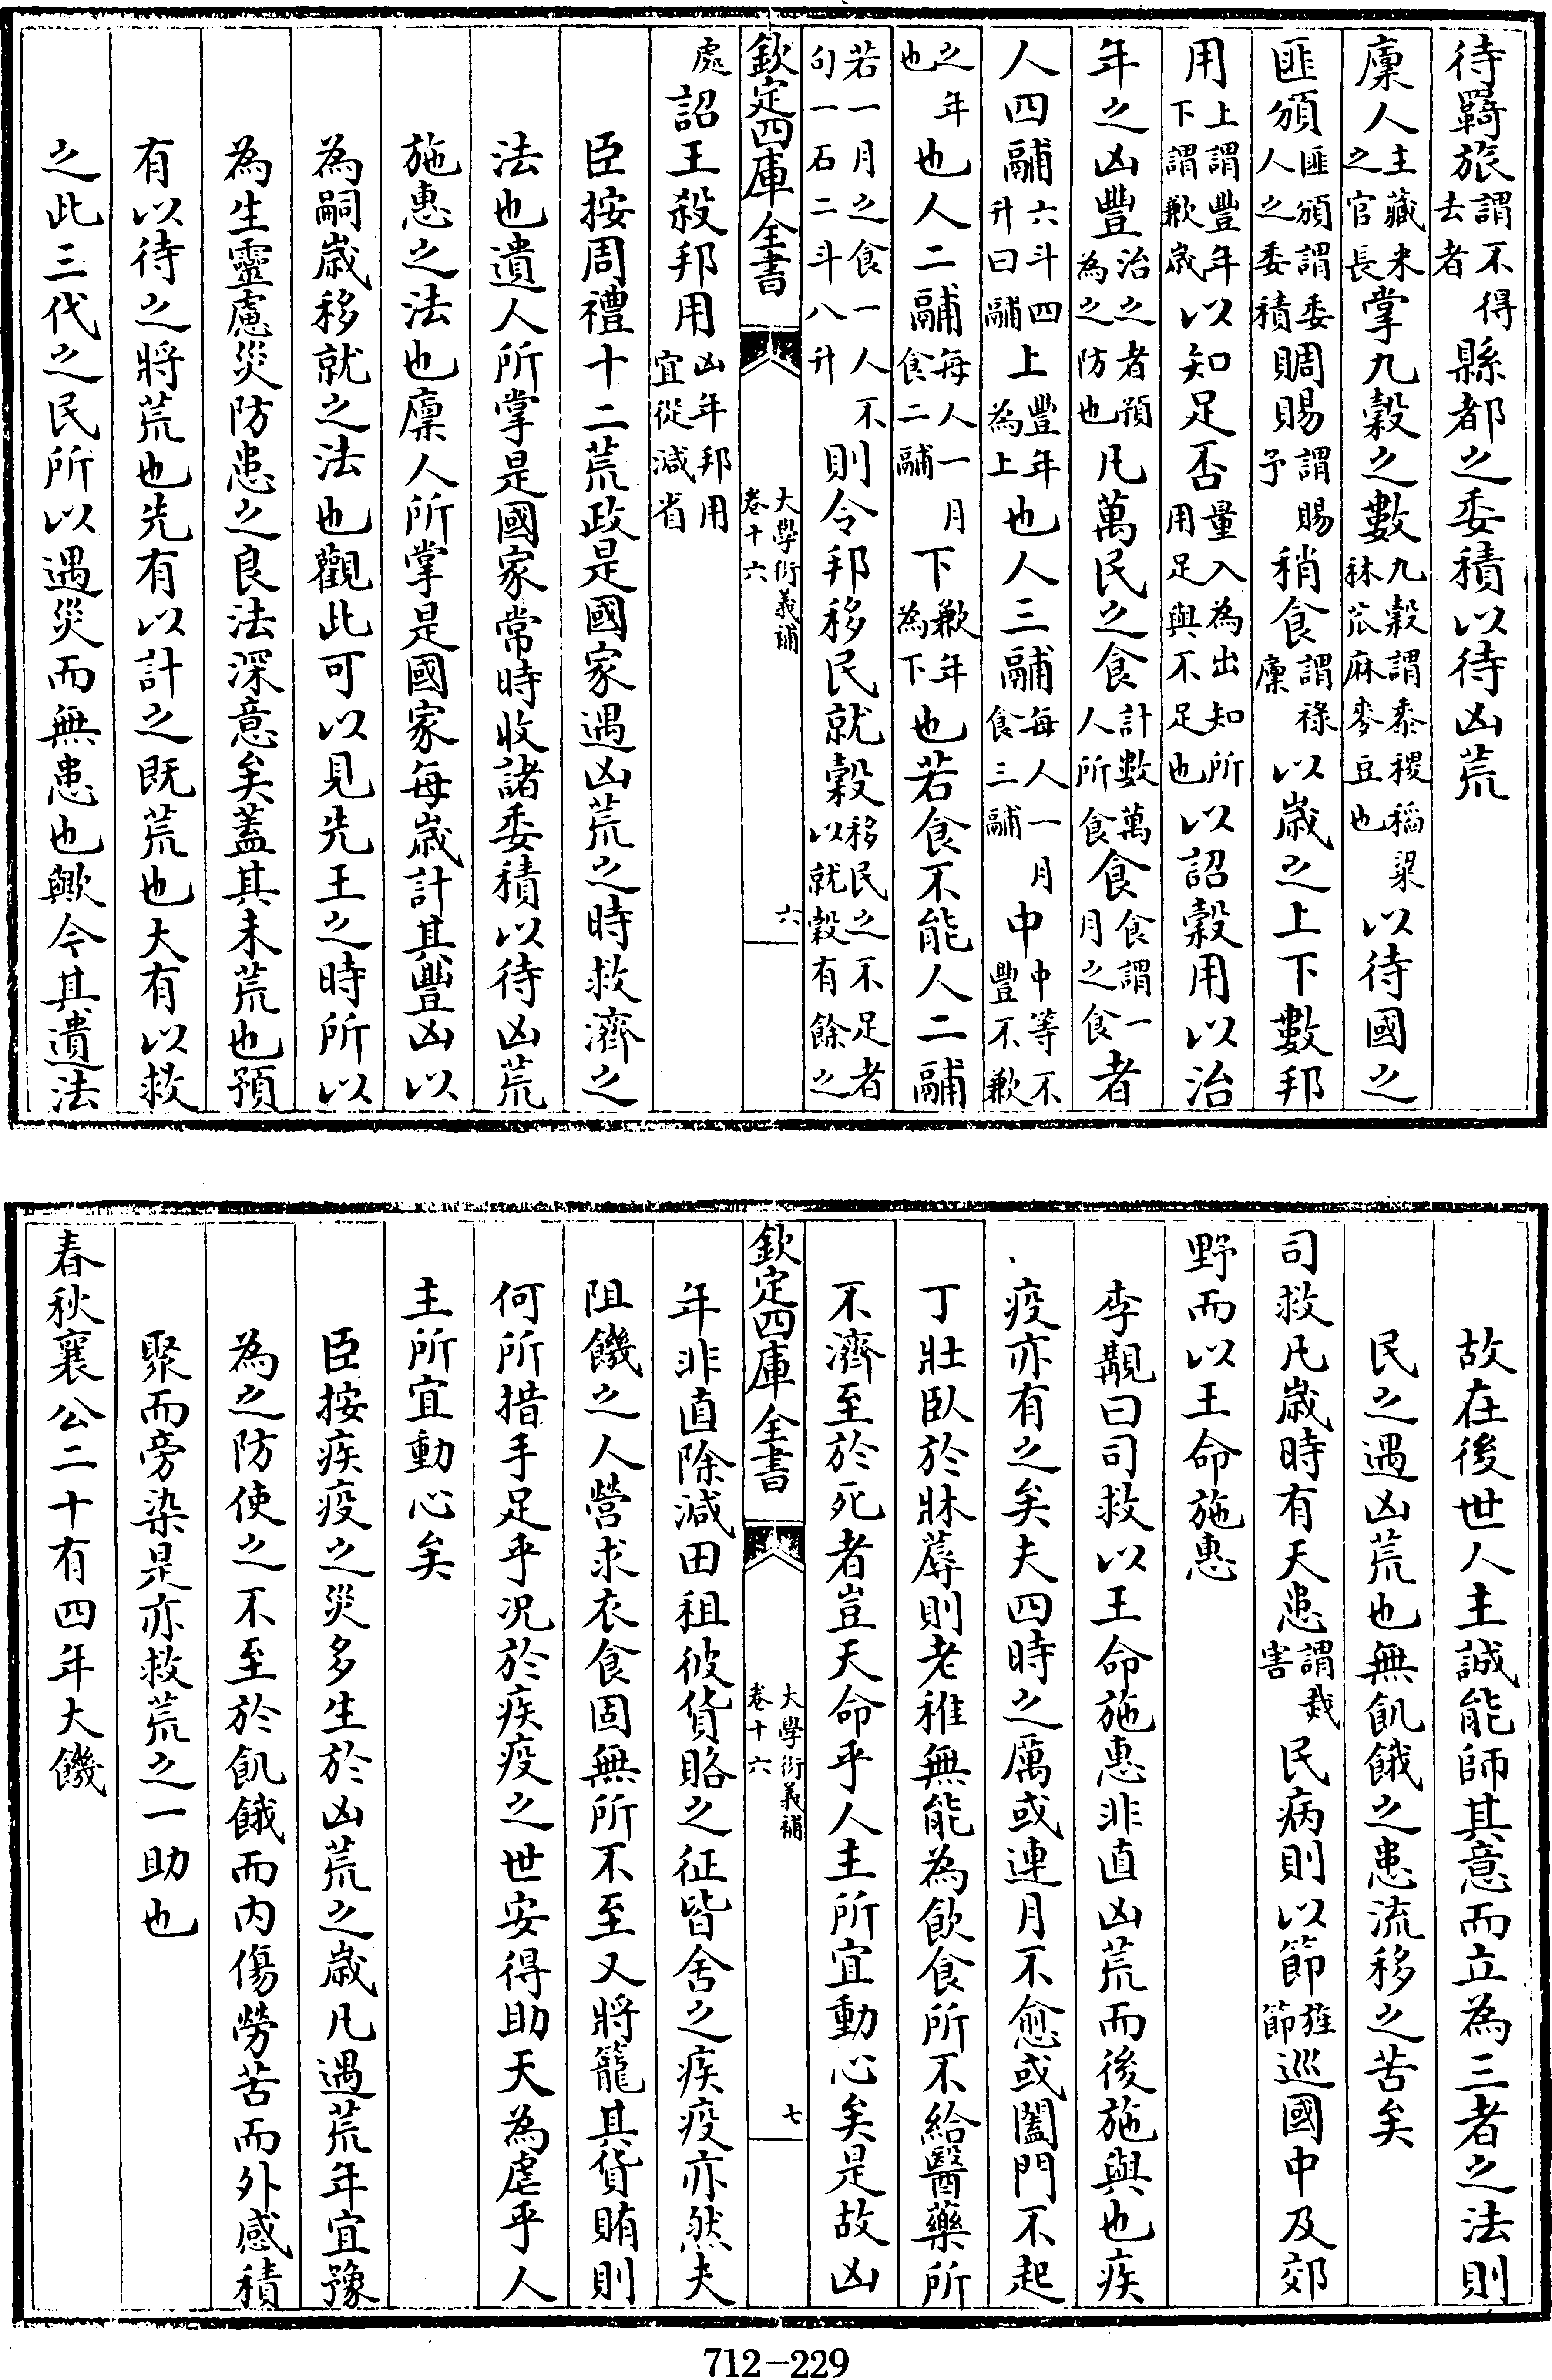 待羇旅謂不得去者縣都之委積以待凶荒
廩人主藏米之官長掌九穀之數九穀謂黍稷稻粱秫苽麻麥豆也以待國之
匪頒匪頒謂委人之委積賙賜謂賜予稍食謂祿廩以歲之上下數邦
用上謂豐年下謂歉歲以知足否量入為出知所用足與不足也以詔穀用以治
年之凶豐治之者預為之防也凡萬民之食計數萬人所食食食謂一月之食者
人四鬴六斗四升曰鬴上豐年為上也人三鬴每人一月食三鬴中中等不豐不歉
之年也也人二鬴每人一月食二鬴下歉年為下也若食不能人二鬴
若一月之食一人不匄一石二斗八升則令邦移民就穀移民之不足者以就穀有餘之
欽定四庫全書 大學衍義補 卷十六 六
處詔王殺邦用凶年邦用宜從減省
臣按周禮十二荒政是國家遇凶荒之時救濟之
法也遺人所掌是國家常時收諸委積以待凶荒
施惠之法也廩人所掌是國家每歲計其豐凶以
為嗣歲移就之法也觀此可以見先王之時所以
為生靈慮災防患之良法深意矣蓋其未荒也預
有以待之將荒也先有以計之既荒也大有以救
之此三代之民所以遇災而無患也歟今其遺法
故在後世人主誠能師其意而立為三者之法則
民之遇凶荒也無飢餓之患流移之苦矣
司救凡歲時有天患謂烖害民病則以節旌節巡國中及郊
野而以王命施惠
李覯曰司救以王命施惠非直凶荒而後施與也疾
疫亦有之矣夫四時之厲或連月不愈或闔門不起
丁壯臥於牀蓐則老稚無能為飲食所不給醫藥所
不濟至於死者豈天命乎人主所宜動心矣是故凶
欽定四庫全書 大學衍義補 卷十六 七
年非直除減田租彼貨賂之征皆舍之疾疫亦然夫
阻饑之人營求衣食固無所不至又將籠其貨賄則
何所措手足乎況於疾疫之世安得助天為虐乎人
主所宜動心矣
臣按疾疫之災多生於凶荒之歲凡遇荒年宜豫
為之防使之不至於飢餓而內傷勞苦而外感積
聚而旁染是亦救荒之一助也
春秋襄公二十有四年大饑
712-229